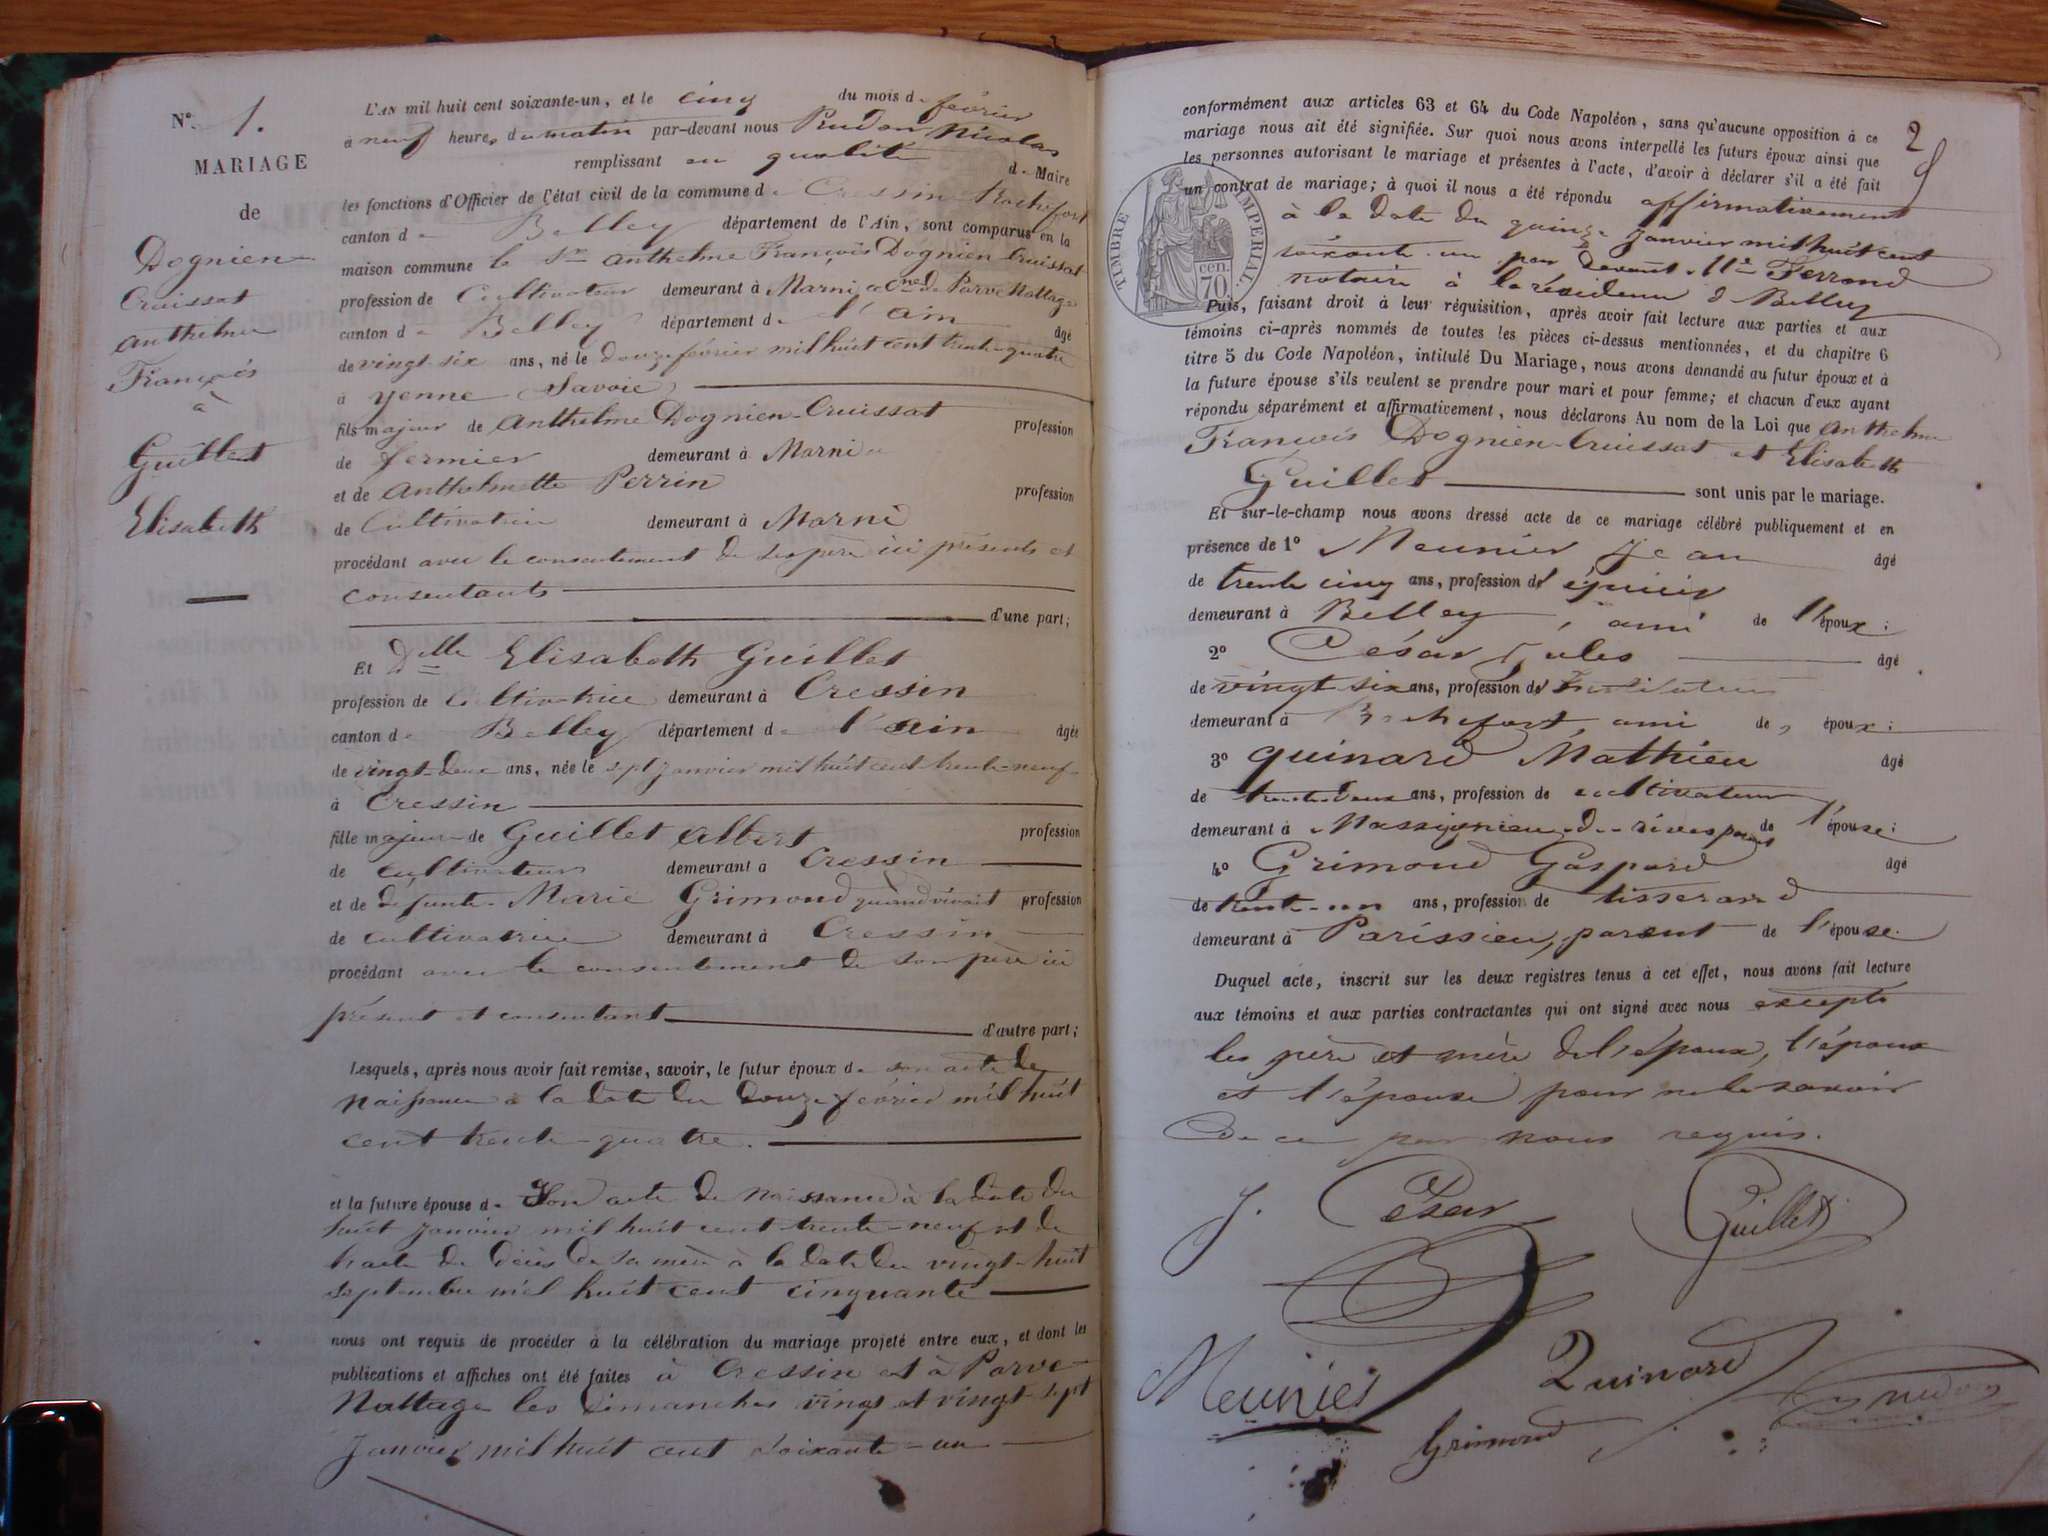 N° 1.
MARIAGE
de
Dognien-
Cruissat
Anthelme
François
à
Guillet
Elisabeth
L'AN mil huit cent soixante-un, et le cinq du mois de février
à neuf heures du matin par-devant nous Prudon Nicolas
remplissant en qualité de Maire
les fonctions d'Officier de l'état civil de la commune de Cressin-Rochefort
canton de Belley département de l'Ain, sont comparus en la
maison commune le Sr Anthelme François Dognien Cruissat
profession de Cultivateur demeurant à Marnix Cne de Parve Nattage
canton de Belley département de l'ain âgé
de vingt-six ans, né le douze février mil huit cent trente-quatre
à Yenne Savoie
fils majeur de Anthelme Dognien-Cruissat profession
de fermier demeurant à Marnix
et de Anthelmette Perrin profession
de Cultivatrice demeurant à Marnix
procédant avec le consentement de ses père ici présents et
consentants
d'une part;
Et Delle Elisabeth Guillet
profession de Cultivatrice demeurant à Cressin
canton de Belley département de l'ain âgée
de vingt-deux ans, née le sept janvier mil huit cent trente-neuf
à Cressin
fille majeure de Guillet Albert profession
de cultivateur demeurant à Cressin
et de défunte Marie Grimond quand vivait profession
de cultivatrice demeurant à Cressin
procédant avec le consentement de son père ici
présent et consentant d'autre part;
Lesquels, après nous avoir fait remise, savoir, le futur époux de son acte de
naissance à la date du douze février mil huit
cent trente-quatre.
et la future épouse de Son acte de naissance à la date du
huit janvier mil huit cent trente-neuf et de
l'acte de décès de sa mère à la date du vingt-huit
septembre mil huit cent cinquante
nous ont requis de procéder à la célébration du mariage projeté entre eux, et dont les
publications et affiches ont été faites à Cressin et à Parve-
Nattage les Dimanches vingt et vingt-sept
Janvier mil huit cent soixante-un
2
conformément aux articles 63 et 64 du Code Napoléon, sans qu'aucune opposition à ce
mariage nous ait été signifiée. Sur quoi nous avons interpellé les futurs époux ainsi que
les personnes autorisant le mariage et présentes à l'acte, d'avoir à déclarer s'il a été fait
un contrat de mariage; à quoi il nous a été répondu affirmativement
à la date du quinze janvier mil huit cent
soixante-un par devant Me Ferrand
notaire à la résidence d Belley
TIMBRE IMPERIAL.
cen.
70
Puis, faisant droit à leur réquisition, après avoir fait lecture aux parties et aux
témoins ci-après nommés de toutes les pièces ci-dessus mentionnées, et du chapitre 6
titre 5 du Code Napoléon, intitulé Du Mariage, nous avons demandé au futur époux et à
la future épouse s'ils veulent se prendre pour mari et pour femme; et chacun d'eux ayant
répondu séparément et affirmativement, nous déclarons Au nom de la Loi que Anthelme
François Dognien-Cruissat et Elisabeth
Guillet sont unis par le mariage.
Et sur-le-champ nous avons dressé acte de ce mariage célébré publiquement et en
présence de 1° Meunier Jean âgé
de trente cinq ans, profession d'épicier
demeurant à Belley, ami de l'époux;
2° César Jules âgé
de vingt-six ans, profession d'Instituteur
demeurant à Rochefort, ami de, époux;
3° Quinard Mathieu âgé
de trente-deux ans, profession de cultivateur
demeurant à Massignieu-de-rives parent de l'épouse;
4° Grimond Gaspard âgé
de trente-un ans, profession de tisserand
demeurant à Parissieu, parent de l'épouse.
Duquel acte, inscrit sur les deux registres tenus à cet effet, nous avons fait lecture
aux témoins et aux parties contractantes qui ont signé avec nous excepté
les père et mère de l'époux, l'époux
et l'épouse pour ne le savoir
de ce par nous requis.
J. César Guillet
Meunier Quinard Prudon
Grimond